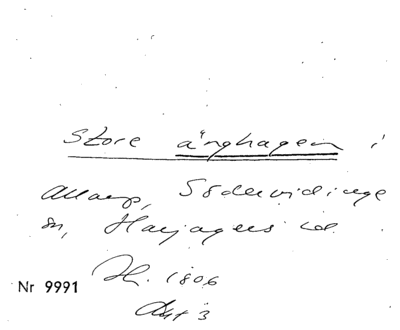 Store änghagen i
Allarp, Södervidinge
sn, Harjagers hd.
Jl. 1806
Nr 9991
Akt 3